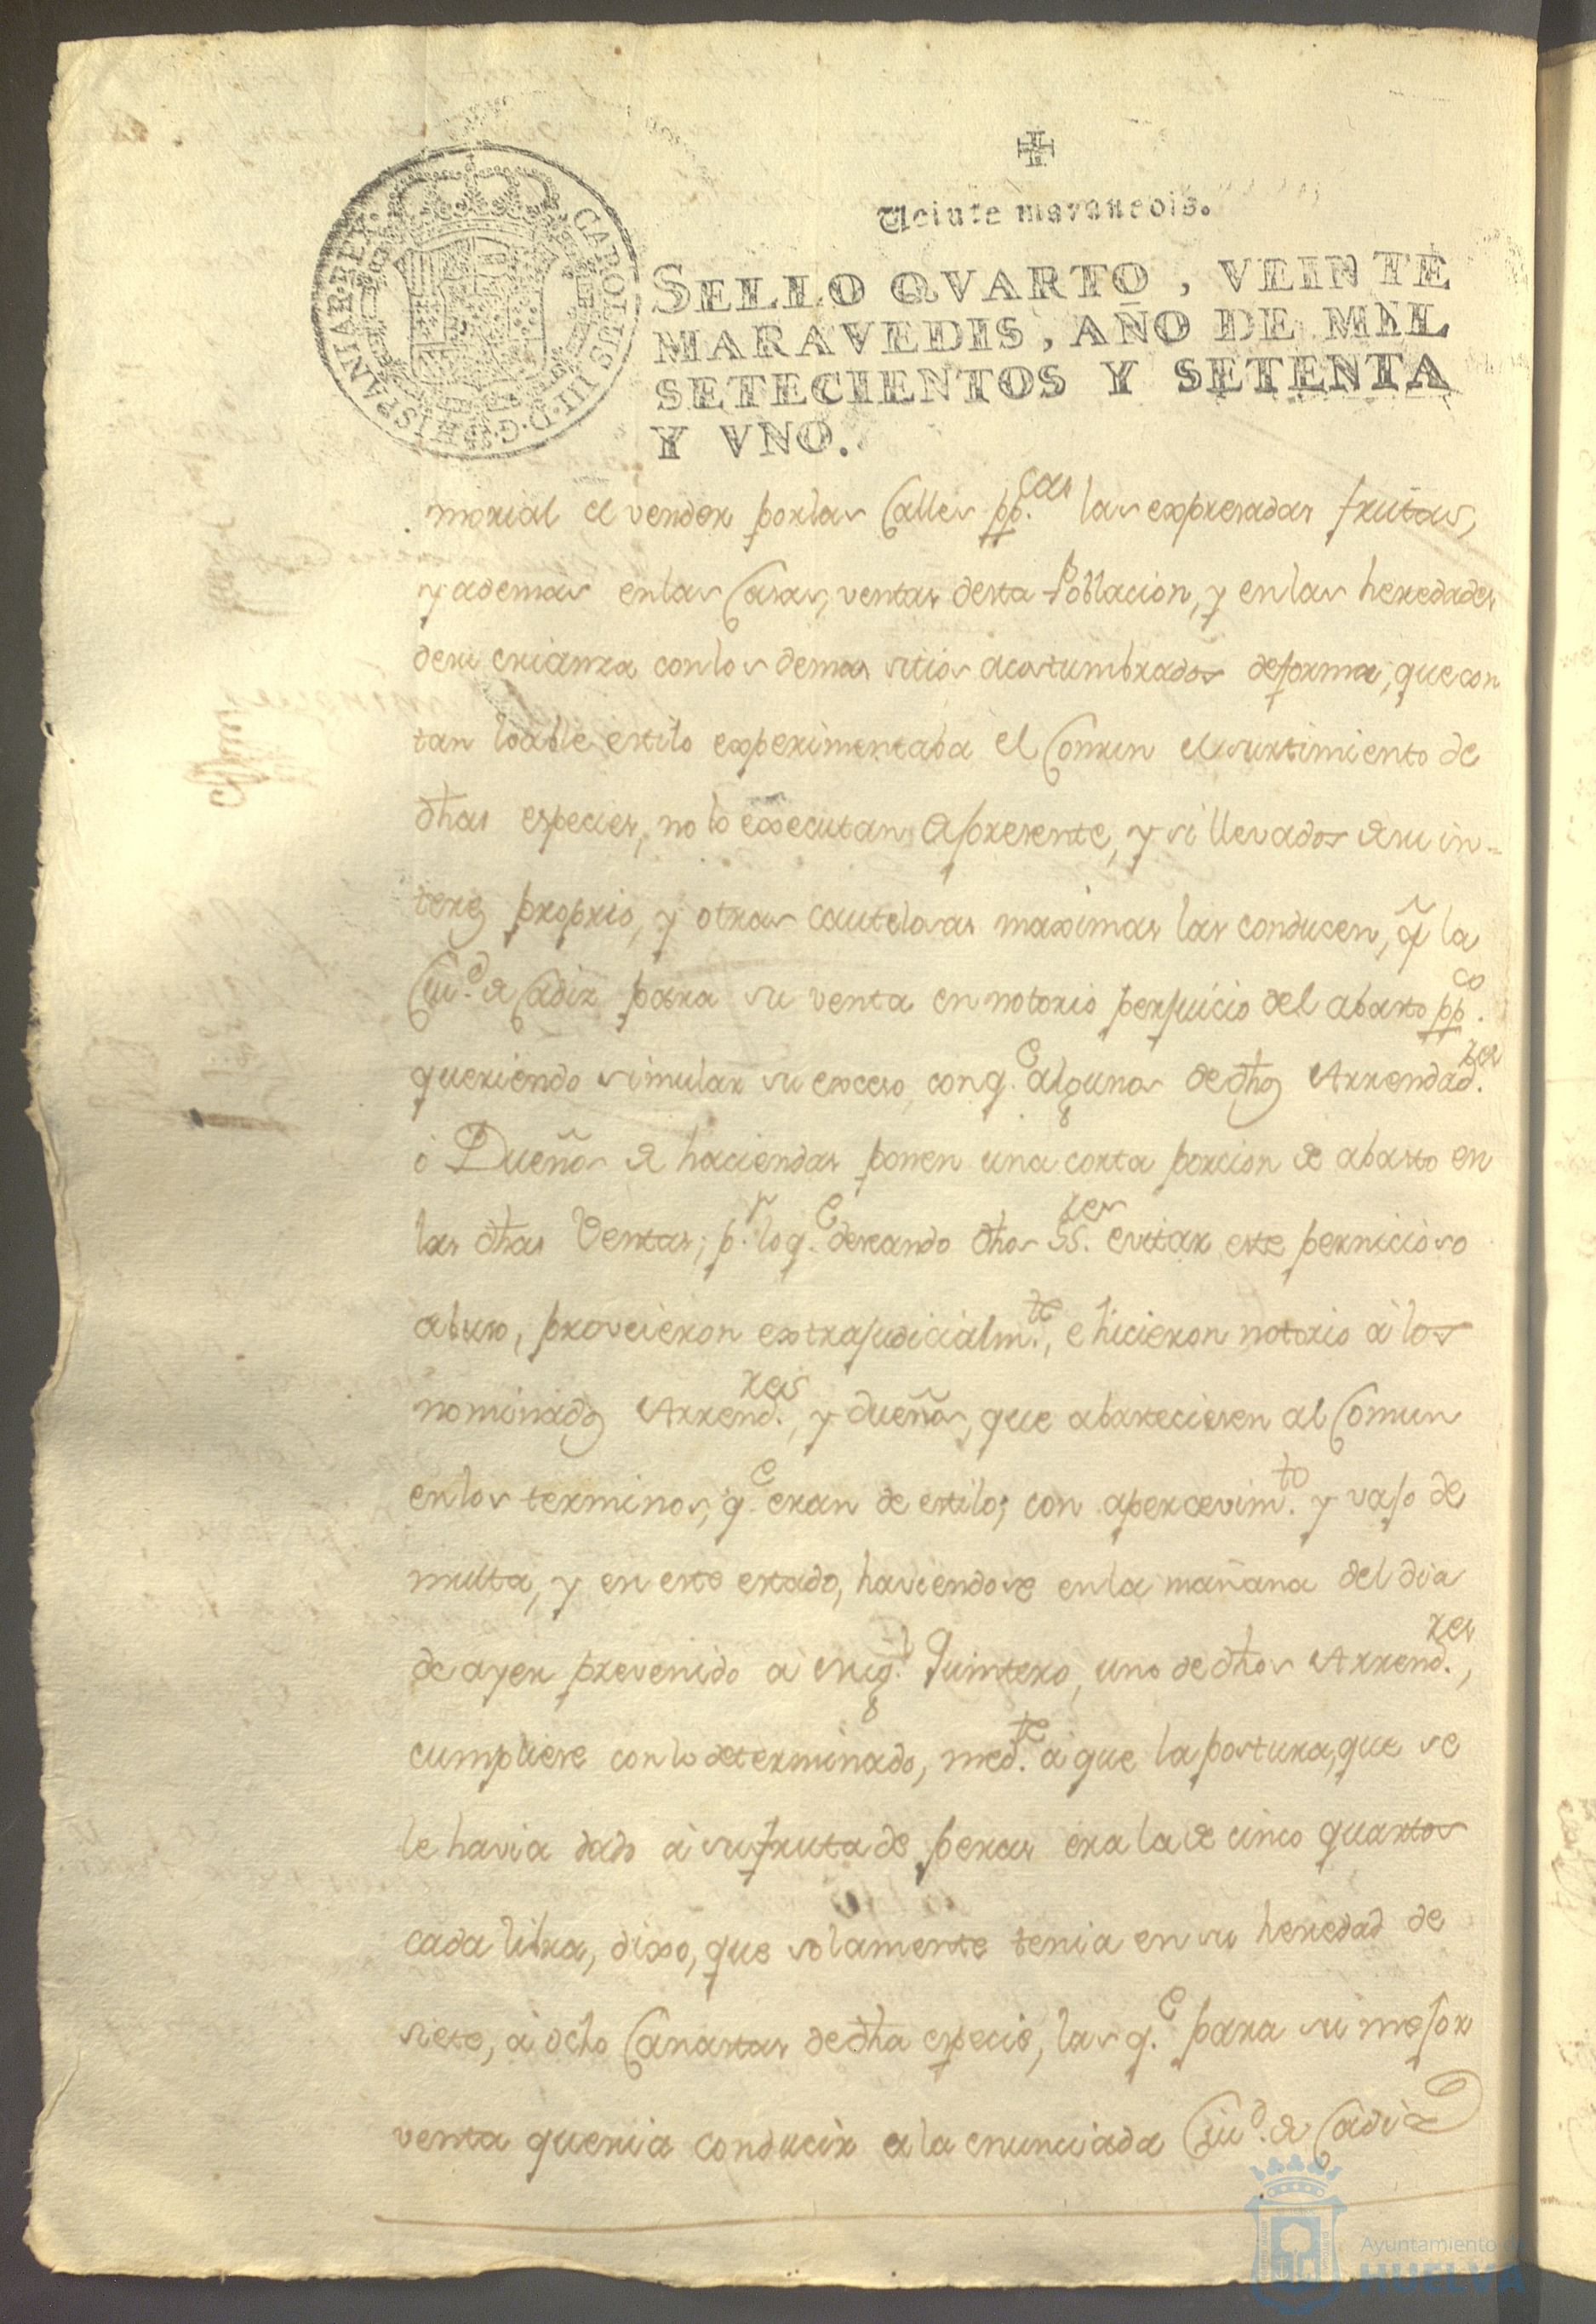 CAROLUS III D.G. HISPANIAR. REX.
Veinte maravedis.
SELLO QVARTO, VEINTE
MARAVEDIS, AÑO DE MIL
SETECIENTOS Y SETENTA
Y VNO.
morial el vender por las Calles pp.cas las expresadas frutas,
y ademas en las Casas, ventas desta Poblacion, y en las heredades
de su crianza con los demas sitios acostumbrados de forma, que con
tan loable estilo experimentaba el Comun el surtimiento de
dhas especies, no lo executan Apresente, y si llevados de su in-
teres proprio, y otras cautelosas maximas las conducen, â la
Ciu.d de Cadiz para su venta en notorio perjuicio del abasto pp.co
queriendo simular su exceso con q.e algunos de dhos Arrendad.res
ò Dueños de haciendas ponen una corta porcion de abasto en
las dhas Ventas; p.r lo q.e deseando dhos SS.res evitar este pernicioso
abuso, proveieron extrajudicialm.te, e hicieron notorio à los
nominados Arrend.res, y dueños, que abasteciesen al Comun
en los terminos, q.e eran de estilo; con apercevim.to y vajo de
multa, y en este estado, haviendose en la mañana del dia
de ayer prevenido à Mig.l Quintero, uno de dhos Arrend.res,
cumpliese con lo determinado, med.te à que la postura, que se
le havia dado à su fruta de peras era la de cinco quartos
cada libra, dixo, que solamente tenia en su heredad de
siete, à ocho Canastas de dha especie, las q.e para su mejor
venta queria conducir a la enunciada Ciu.d de Cadiz
Ayuntamiento de
HUELVA